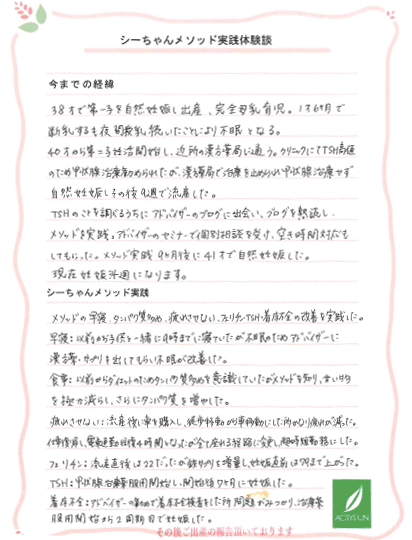 シーちゃんメソッド実践体験談
今までの経緯
38才で第一子を自然妊娠し出産、完全母乳育児。1才6ヶ月で
断乳するも夜間授乳続いたことにより不眠となる。
40才から第二子妊活開始し、近所の漢方薬局に通う。クリニックにてTSH高値
のため甲状腺治療勧められたが、漢方薬局で治療を止められ甲状腺治療せず
自然妊娠しその後9週で流産した。
TSHのことを調べるうちにアドバイザーのブログに出会い、ブログを熟読し
メソッドを実践。アドバイザーのセミナーで個別相談を受け、空き時間対応も
してもらった。メソッド実践9ヶ月後に41才で自然妊娠した。
現在妊娠 週になります。
シーちゃんメソッド実践
メソッドの早寝、タンパク質多め、疲れさせない、フェリチン・TSH・着床不全の改善を実践した。
早寝：以前から子供と一緒に9時までに寝ていたが不眠のためアドバイザーに
漢方薬・サプリを出してもらい不眠が改善した。
食事：以前からダイエットのためタンパク質多めを意識していたがメソッドを知り、甘い物
を極力減らし、さらにタンパク質を増やした。
疲れさせない：流産後に車を購入し、徒歩移動から車移動にした所かなり疲れが減った。
仕事復帰し、電車通勤往復4時間となったが座って座れる経路に変更し、時短勤務にした。
フェリチン：流産直後は22だったが鉄サプリを増量し、妊娠直前は79まで上がった。
TSH：甲状腺治療薬服用開始し、開始後7ヶ月に妊娠した。
着床不全：アドバイザーの勧めで着床不全検査をした所問題がみつかり、治療薬
服用開始から2周期目で妊娠した。
その後ご出産の報告頂いております
ACSYSUN